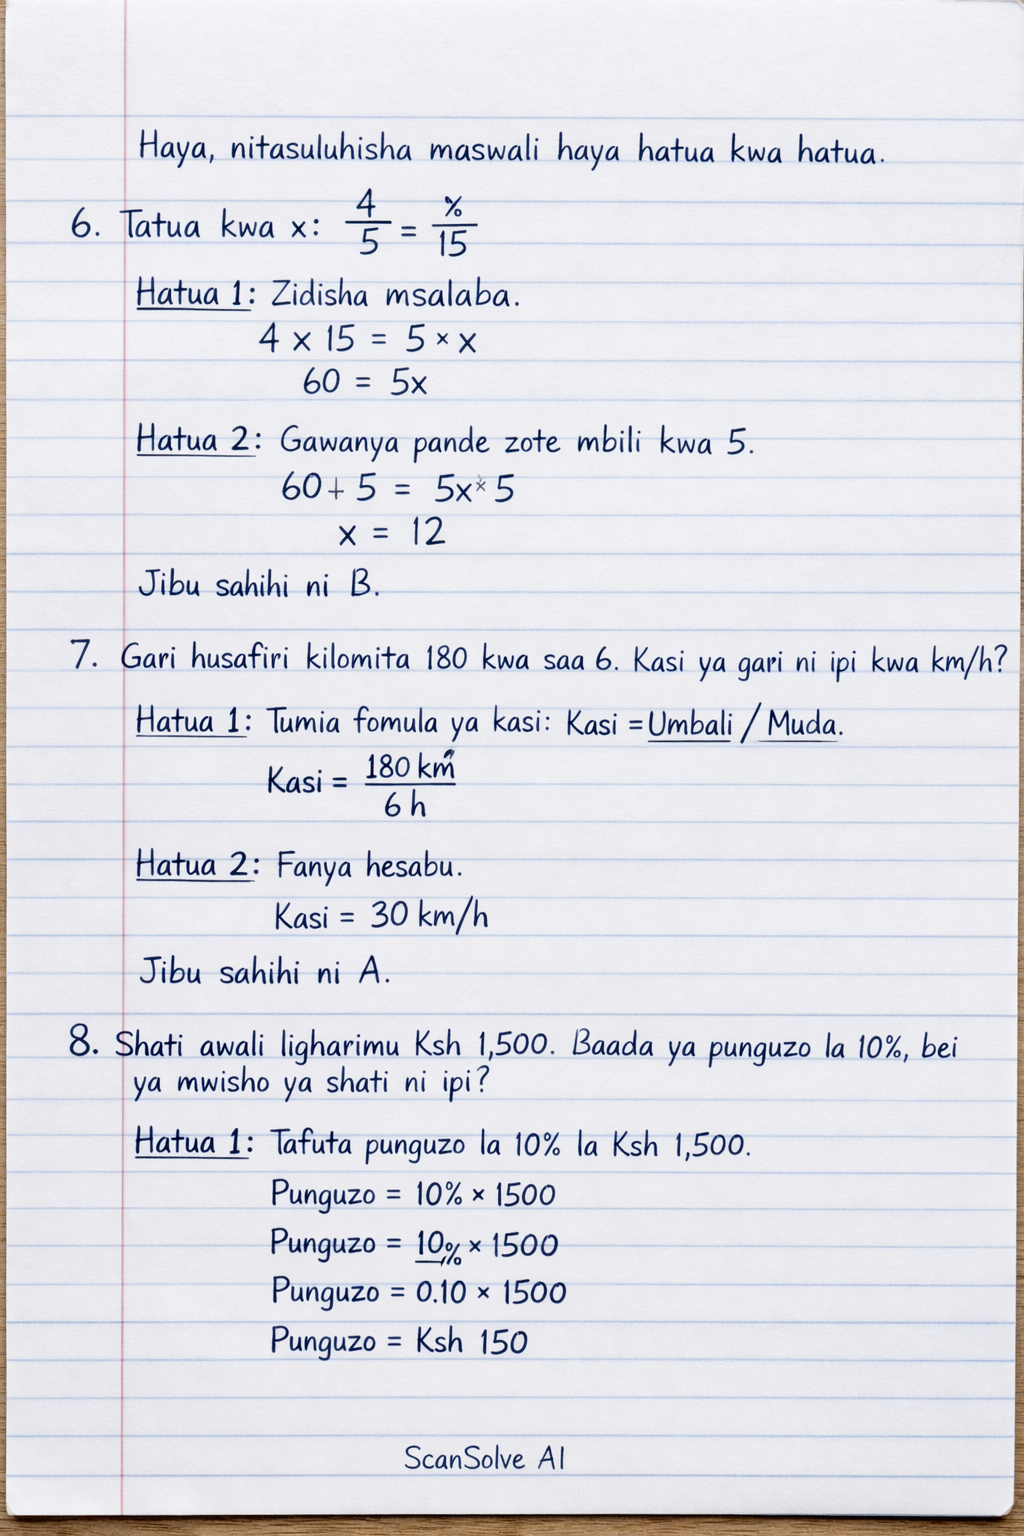 Haya, nitasuluhisha maswali haya hatua kwa hatua.
6. Tatua kwa x: 4/5 = %/15
Hatua 1: Zidisha msalaba.
4 × 15 = 5 × x
60 = 5x
Hatua 2: Gawanya pande zote mbili kwa 5.
60 + 5 = 5x × 5
x = 12
Jibu sahihi ni B.
7. Gari husafiri kilomita 180 kwa saa 6. Kasi ya gari ni ipi kwa km/h?
Hatua 1: Tumia fomula ya kasi: Kasi = Umbali / Muda.
Kasi = 180 km / 6 h
Hatua 2: Fanya hesabu.
Kasi = 30 km/h
Jibu sahihi ni A.
8. Shati awali ligharimu Ksh 1,500. Baada ya punguzo la 10%, bei
ya mwisho ya shati ni ipi?
Hatua 1: Tafuta punguzo la 10% la Ksh 1,500.
Punguzo = 10% × 1500
Punguzo = 10% × 1500
Punguzo = 0.10 × 1500
Punguzo = Ksh 150
ScanSolve AI